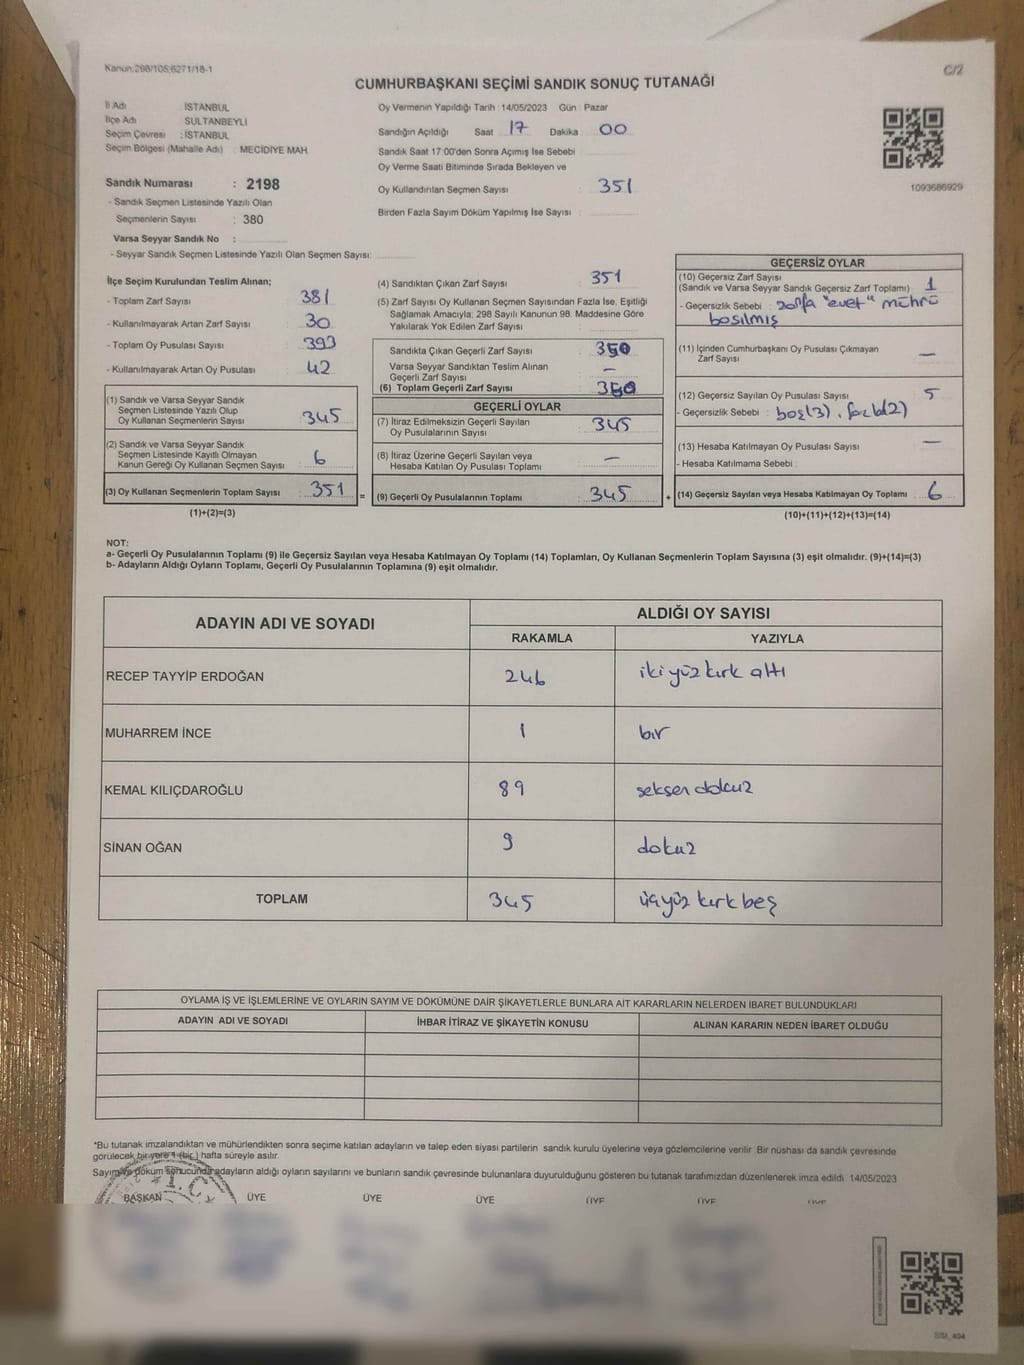 Kanun:298/105;6271/18-1
C/2
CUMHURBAŞKANI SEÇİMİ SANDIK SONUÇ TUTANAĞI
İl Adı : İSTANBUL
İlçe Adı : SULTANBEYLİ
Seçim Çevresi : İSTANBUL
Seçim Bölgesi (Mahalle Adı) : MECİDİYE MAH.
Sandık Numarası : 2198
- Sandık Seçmen Listesinde Yazılı Olan
Seçmenlerin Sayısı : 380
Varsa Seyyar Sandık No :
- Seyyar Sandık Seçmen Listesinde Yazılı Olan Seçmen Sayısı:
Oy Vermenin Yapıldığı Tarih : 14/05/2023 Gün : Pazar
Sandığın Açıldığı Saat : 17 Dakika : 00
Sandık Saat 17:00'den Sonra Açımış İse Sebebi
Oy Verme Saati Bitiminde Sırada Bekleyen ve
Oy Kullandırılan Seçmen Sayısı : 351
Birden Fazla Sayım Döküm Yapılmış İse Sayısı :
1093686929
İlçe Seçim Kurulundan Teslim Alınan;
- Toplam Zarf Sayısı : 381
- Kullanılmayarak Artan Zarf Sayısı : 30
- Toplam Oy Pusulası Sayısı : 393
- Kullanılmayarak Artan Oy Pusulası : 42
(1) Sandık ve Varsa Seyyar Sandık
Seçmen Listesinde Yazılı Olup
Oy Kullanan Seçmenlerin Sayısı : 345
(2) Sandık ve Varsa Seyyar Sandık
Seçmen Listesinde Kayıtlı Olmayan
Kanun Gereği Oy Kullanan Seçmen Sayısı : 6
(3) Oy Kullanan Seçmenlerin Toplam Sayısı : 351 =
(1)+(2)=(3)
(4) Sandıktan Çıkan Zarf Sayısı : 351
(5) Zarf Sayısı Oy Kullanan Seçmen Sayısından Fazla İse, Eşitliği
Sağlamak Amacıyla; 298 Sayılı Kanunun 98. Maddesine Göre
Yakılarak Yok Edilen Zarf Sayısı :
Sandıkta Çıkan Geçerli Zarf Sayısı : 350
Varsa Seyyar Sandıktan Teslim Alınan
Geçerli Zarf Sayısı : —
(6) Toplam Geçerli Zarf Sayısı : 350
GEÇERLİ OYLAR
(7) İtiraz Edilmeksizin Geçerli Sayılan
Oy Pusulalarının Sayısı : 345
(8) İtiraz Üzerine Geçerli Sayılan veya
Hesaba Katılan Oy Pusulası Toplamı : —
(9) Geçerli Oy Pusulalarının Toplamı : 345 +
GEÇERSİZ OYLAR
(10) Geçersiz Zarf Sayısı
(Sandık ve Varsa Seyyar Sandık Geçersiz Zarf Toplamı) : 1
- Geçersizlik Sebebi : zarfa "evet" mührü
basılmış
(11) İçinden Cumhurbaşkanı Oy Pusulası Çıkmayan
Zarf Sayısı : —
(12) Geçersiz Sayılan Oy Pusulası Sayısı : 5
- Geçersizlik Sebebi : boş(3), fazla(2)
(13) Hesaba Katılmayan Oy Pusulası Sayısı : —
- Hesaba Katılmama Sebebi :
(14) Geçersiz Sayılan veya Hesaba Katılmayan Oy Toplamı : 6
(10)+(11)+(12)+(13)=(14)
NOT:
a- Geçerli Oy Pusulalarının Toplamı (9) ile Geçersiz Sayılan veya Hesaba Katılmayan Oy Toplamı (14) Toplamları, Oy Kullanan Seçmenlerin Toplam Sayısına (3) eşit olmalıdır. (9)+(14)=(3)
b- Adayların Aldığı Oyların Toplamı, Geçerli Oy Pusulalarının Toplamına (9) eşit olmalıdır.
ADAYIN ADI VE SOYADI
ALDIĞI OY SAYISI
RAKAMLA YAZIYLA
RECEP TAYYİP ERDOĞAN 246 iki yüz kırk altı
MUHARREM İNCE 1 bir
KEMAL KILIÇDAROĞLU 89 seksen dokuz
SİNAN OĞAN 9 dokuz
TOPLAM 345 üçyüz kırk beş
OYLAMA İŞ VE İŞLEMLERİNE VE OYLARIN SAYIM VE DÖKÜMÜNE DAİR ŞİKAYETLERLE BUNLARA AİT KARARLARIN NELERDEN İBARET BULUNDUKLARI
ADAYIN ADI VE SOYADI İHBAR İTİRAZ VE ŞİKAYETİN KONUSU ALINAN KARARIN NEDEN İBARET OLDUĞU
*Bu tutanak imzalandıktan ve mühürlendikten sonra seçime katılan adayların ve talep eden siyasi partilerin sandık kurulu üyelerine veya gözlemcilerine verilir. Bir nüshası da sandık çevresinde
görülecek bir yere 1 (bir) hafta süreyle asılır.
Sayım ve döküm sonucunda adayların aldığı oyların sayılarını ve bunların sandık çevresinde bulunanlara duyurulduğunu gösteren bu tutanak tarafımızdan düzenlenerek imza edildi. 14/05/2023
T.C.
BAŞKAN ÜYE ÜYE ÜYE ÜYE ÜYE ÜYE